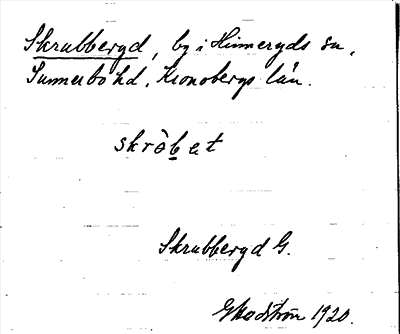 Skrubbergd, by i Hinneryds sn,
Sunnerbo hd, Kronobergs län.
skròbet
Skrubbergd G.
1920.